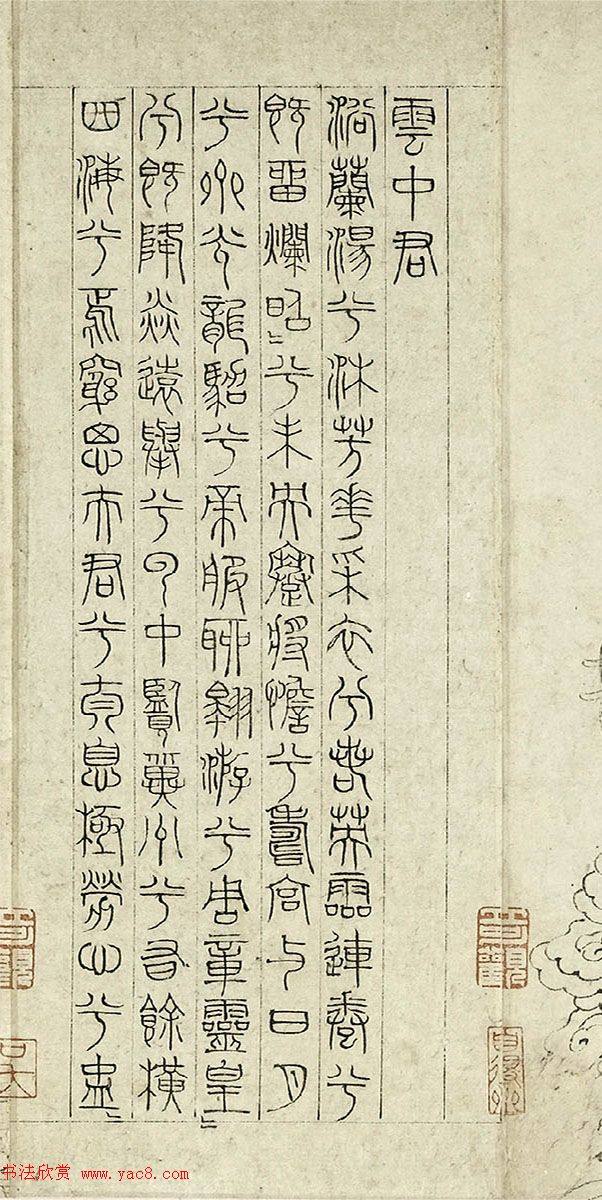 雲中君
浴蘭湯兮沐芳華采衣兮若英靈連蜷兮
既留爛昭〻兮未央蹇將憺兮壽宮与日月
兮齊光龍駕兮帝服聊翱游兮周章靈皇〻
兮既降猋遠舉兮雲中覽冀州兮有餘橫
四海兮焉窮思夫君兮太息極勞心兮盅〻
书法欣赏 www.yac8.com